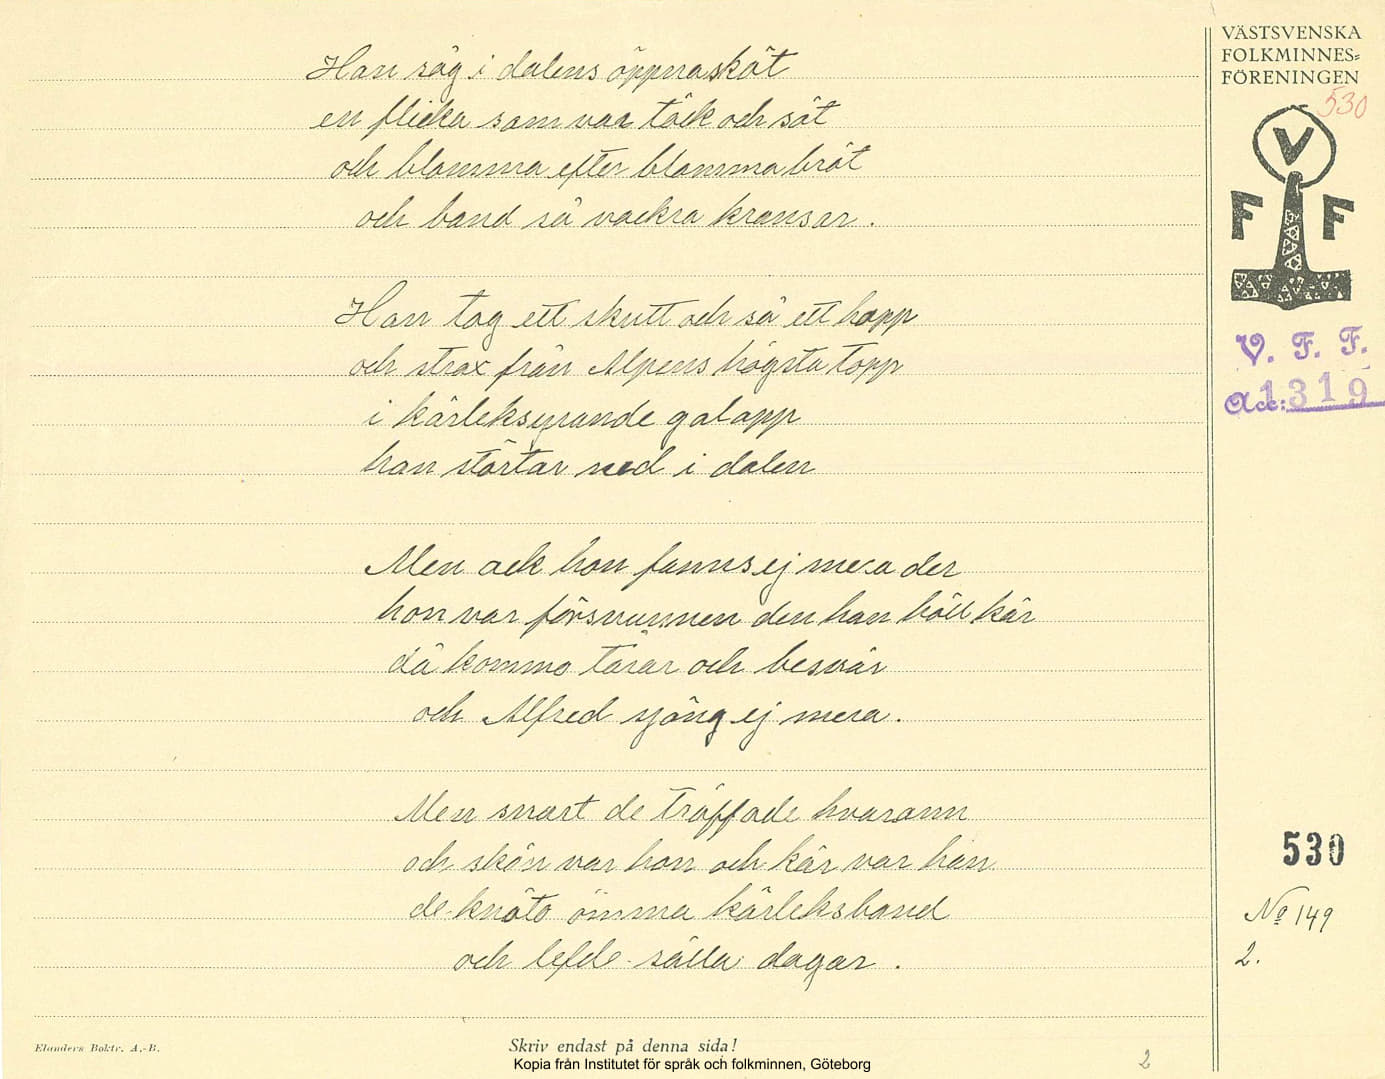 Han såg i dalens öppna sköt
en flicka som var täck och söt
och blomma efter blomma bröt
och band så vackra kransar.
Han tog ett skutt och så ett hopp
och strax från Alpens högsta topp
i kärleksyrande galopp
han störtar ned i dalen
Men ack hon fanns ej mera der
hon var försvunnen den han höll kär
då kommo tårar och besvär
och Alfred sjöng ej mera.
Men snart de träffade hvarann
och skön var hon och kär var han
de knöto ömma kärleksband
och lefde sälla dagar.
VÄSTSVENSKA
FOLKMINNES=
FÖRENINGEN
530
V
F F
V. F. F.
Acc: 1319
530
No 149
2.
Elanders Boktr. A.-B.
Skriv endast på denna sida!
Kopia från Institutet för språk och folkminnen, Göteborg
2